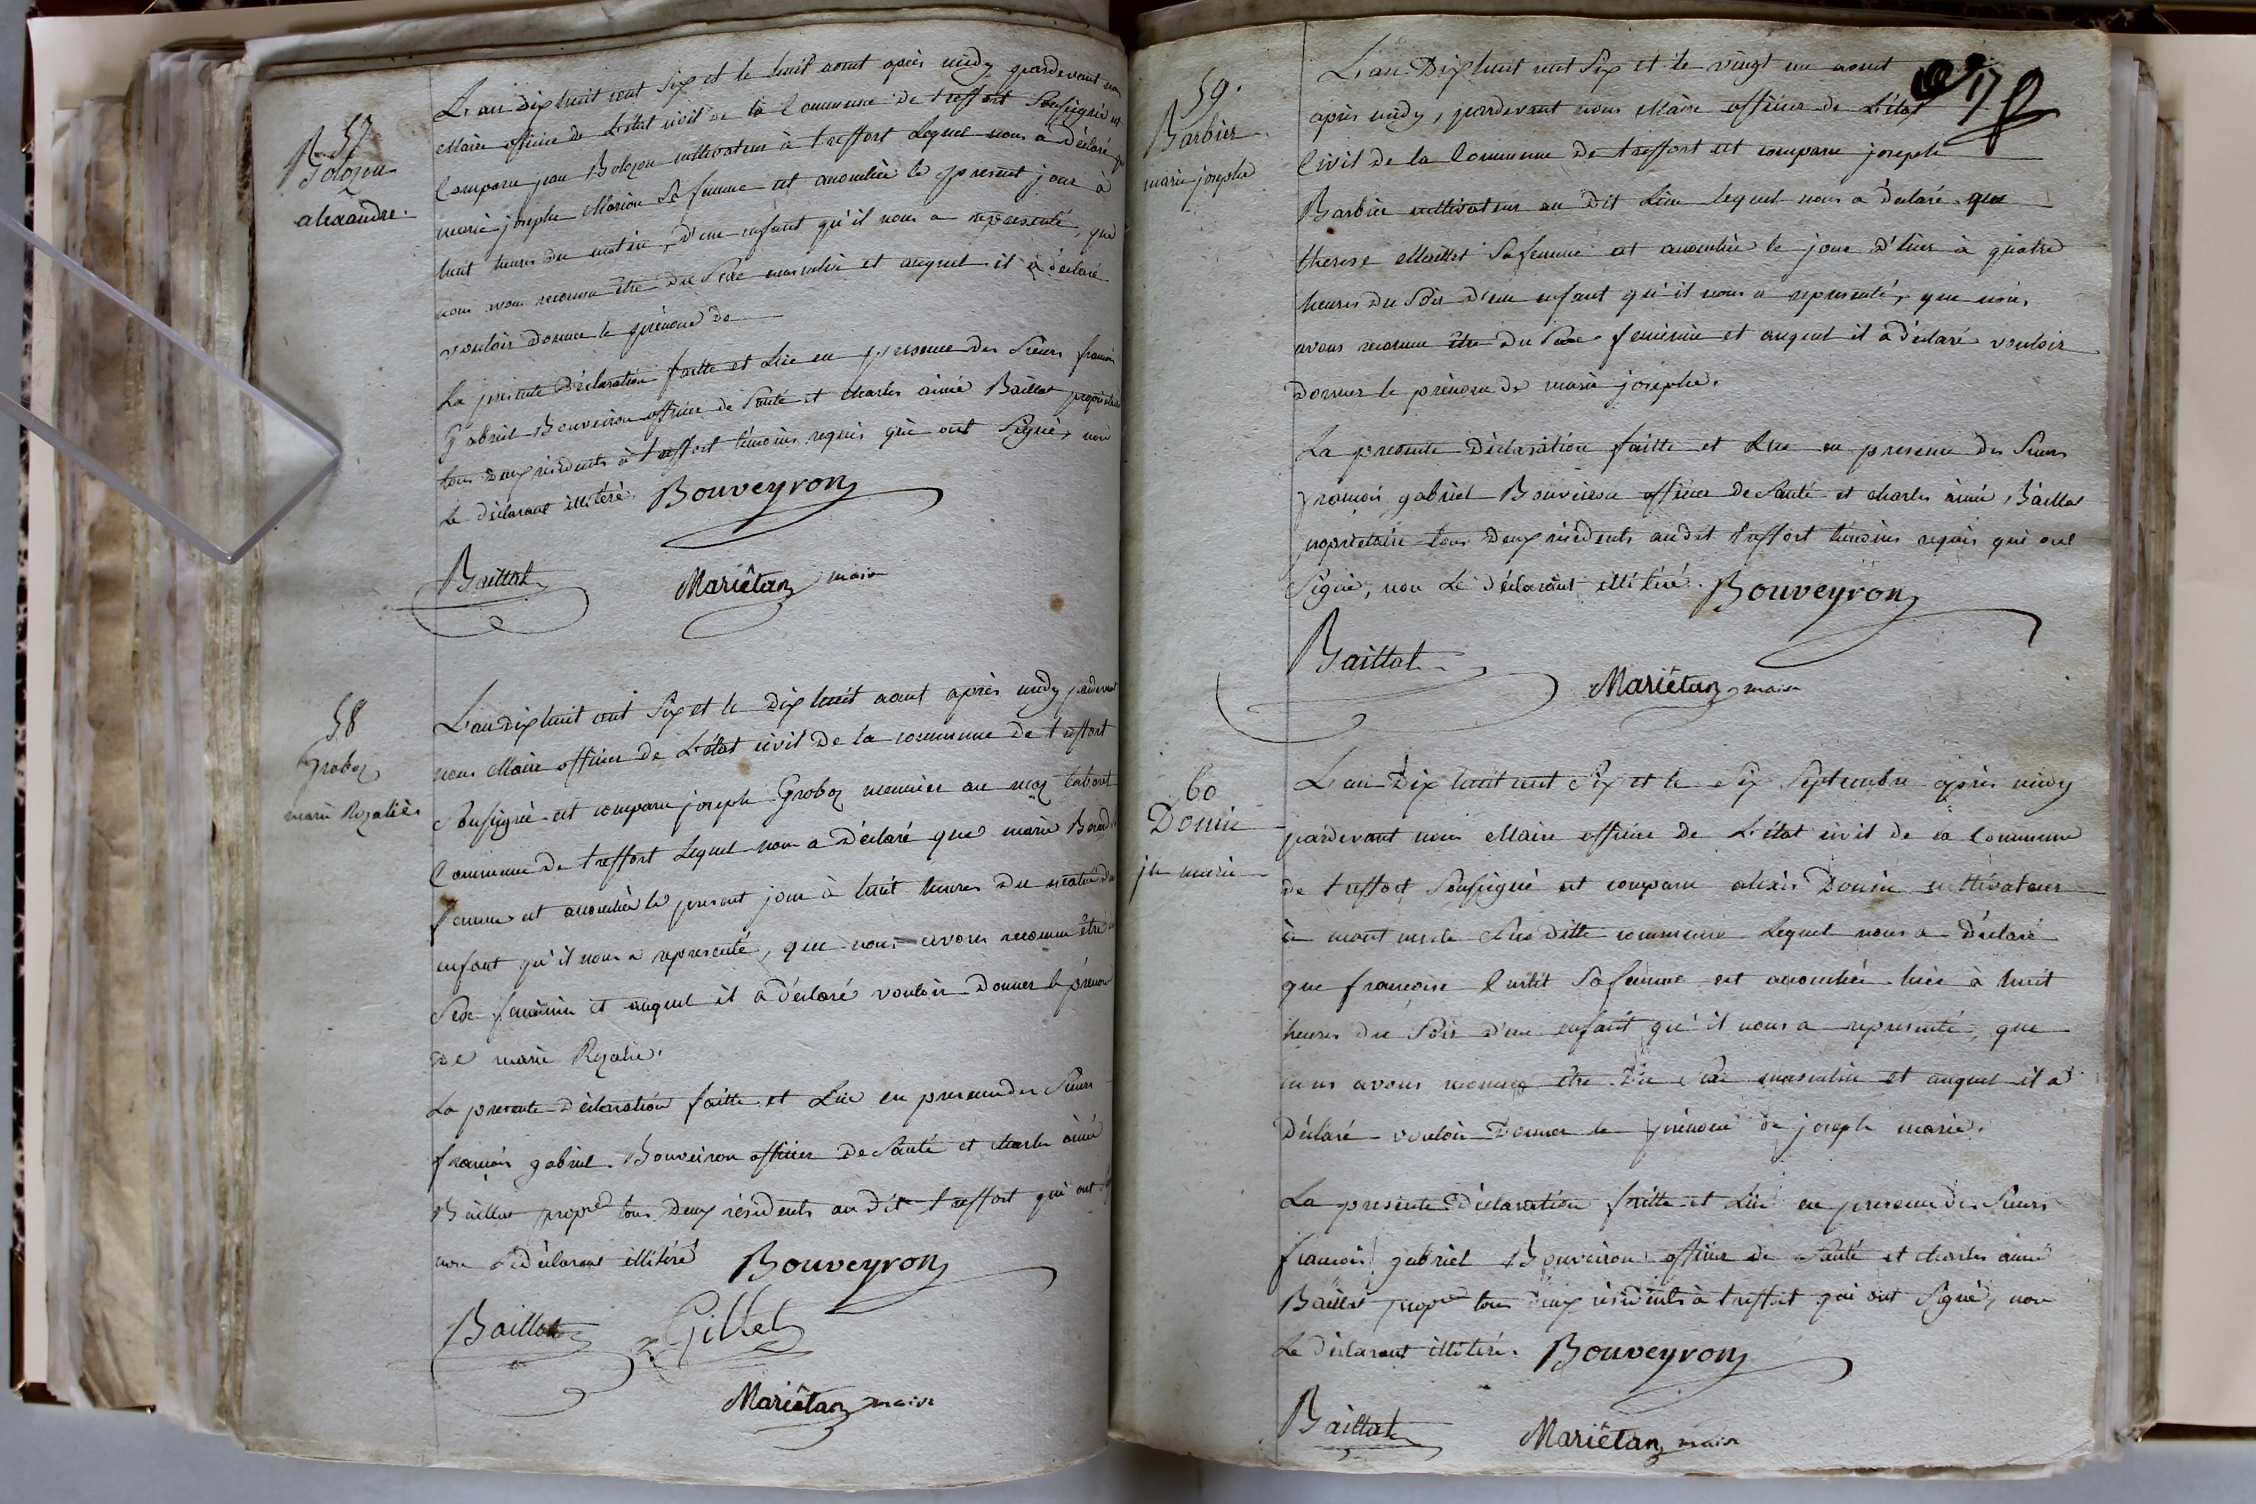 57
Bolozon
alexandre.
L'an dix huit cent six et le huit aout après midy pardevant nous
Maire officier de L'état civil de la Commune de treffort Soussigné est
Comparu jean Bolozon cultivateur à treffort Lequel nous a déclaré que
marie josephe Marion Sa femme est anouchée le present jour à
huit heures du matin, d'un enfant qu'il nous a representé, que
nous avons reconnu être du Sexe masculin et auquel il a déclaré
vouloir donner le prénom de
La presente Déclaration faitte et Lüe en presence des Sieurs francois
Gabriel Bouveiron officier de Santé et charles aimé Baillat propriétaire
tous deux résidents à treffort témoins requis qui ont Signé, non
Le déclarant illitéré. Bouveyron
Baillat
Mariêtan maire
58
Groboz
marie Rozalie
L'an dix huit cent Six et le dix huit aout après midy pardevant
nous Maire officier de L'état civil de la commune de treffort
Soussigné est comparu joseph Groboz meunier au
Commune de treffort Lequel nous a déclaré que marie
femme est accouchée le present jour à huit heures du matin d'un
enfant qu'il nous a representé, que nous avons reconnu être du
Sexe feminin et auquel il a déclaré vouloir donner le prénom
de marie Rozalie.
La presente déclaration faitte et Lüe en presence des Sieurs
françois gabriel Bouveiron officier de Santé et charles aimé
Baillat propre tous deux résidents au dit treffort qui ont
non Le déclarant illitéré Bouveyron
Baillat
Gillet
Mariêtan maire
59.
Barbier
marie josephe
L'an Dix huit cent Six et le vingt un aout
après midy, pardevant nous Maire officier de L'état
Civil de la Commune de treffort est comparu joseph
Barbier cultivateur au dit Lieu lequel nous a déclaré que
therese Maillet Sa femme est anouchée le jour d'hier à quatre
heures du Soir d'un enfant qu'il nous a representé, que nous
avons reconnu être du Sexe feminin et auquel il a déclaré vouloir
donner le prénom de marie josephe.
La presente Déclaration faitte et Lüe en presence des Sieurs
françois gabriel Bouveiron officier de Santé et charles aimé Baillat
propriétaire tous deux résidents audit treffort témoins requis qui ont
Signé, non Le déclarant illitéré. Bouveyron
Baillat
Mariêtan maire
60
Donin
jh marie
L'an Dix huit cent Six et le Six Septembre après midy
pardevant nous Maire officier de L'état civil de la Commune
de treffort Soussigné est comparu alexis Donin cultivateur
à mont Sus ditte commune Lequel nous a déclaré
que francoise Curtet Sa femme est accouchée hier à huit
heures du Soir d'un enfant qu'il nous a representé, que
nous avons reconnu être du Sexe masculin et auquel il a
déclaré vouloir donner le prénom de joseph marie.
La presente Déclaration faitte et Lüe en presence des Sieurs
françois gabriel Bouveiron officier de Santé et charles aimé
Baillat propre tous deux résidents à treffort qui ont Signé, non
Le déclarant illitéré. Bouveyron
Baillat
Mariêtan maire